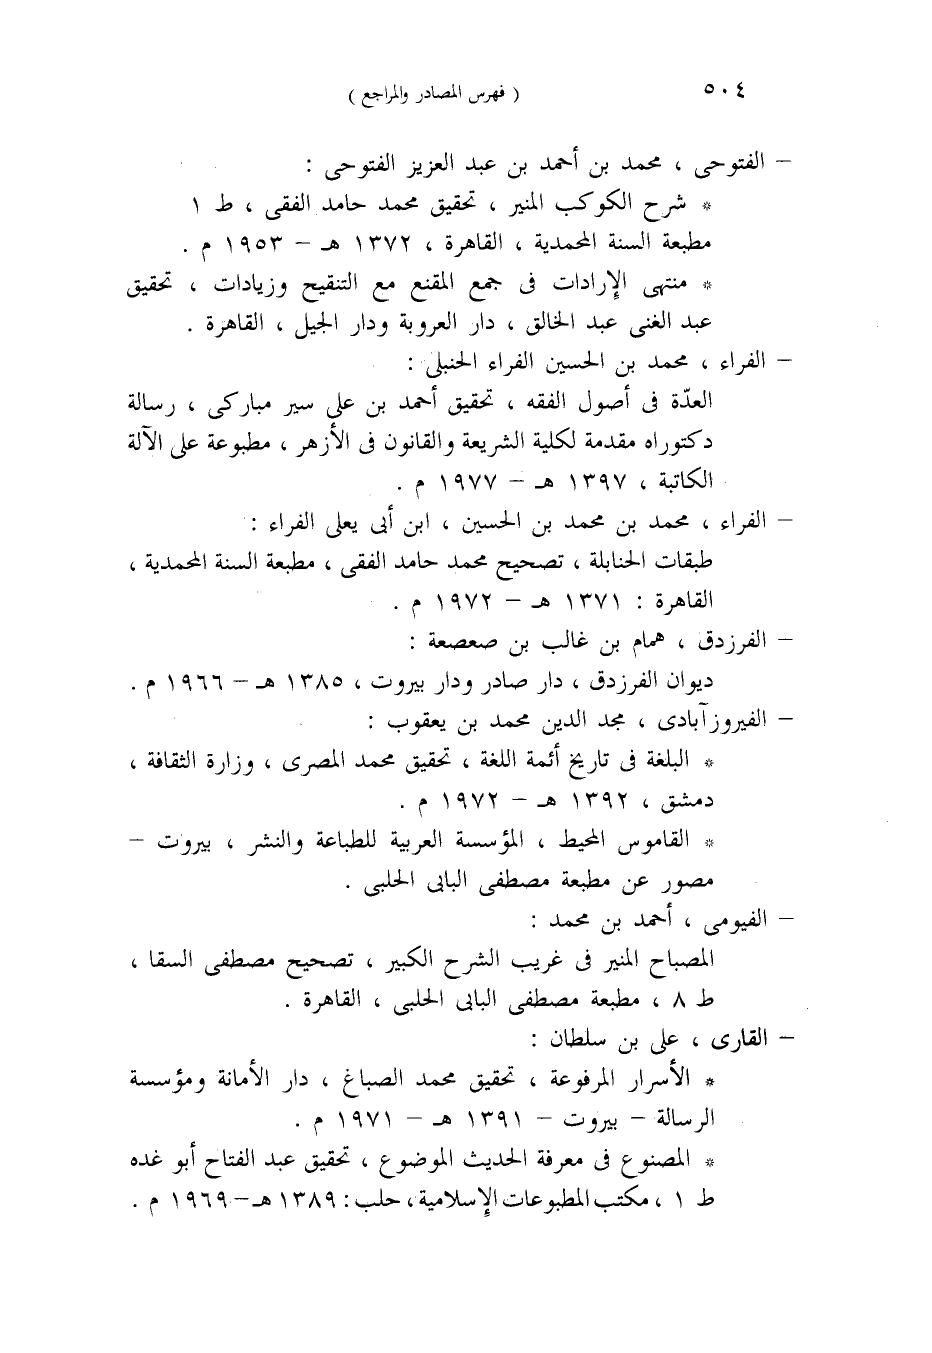 ٥٠٤ ( فهرس المصادر والمراجع )
– الفتوحى ، محمد بن أحمد بن عبد العزيز الفتوحى :
* شرح الكوكب المنير ، تحقيق محمد حامد الفقى ، ط ١
مطبعة السنة المحمدية ، القاهرة ، ١٣٧٢ هـ – ١٩٥٣ م .
* منتهى الإرادات فى جمع المقنع مع التنقيح وزيادات ، تحقيق
عبد الغنى عبد الخالق ، دار العروبة ودار الجيل ، القاهرة .
– الفراء ، محمد بن الحسين الفراء الحنبلى :
العدّة فى أصول الفقه ، تحقيق أحمد بن على سير مباركى ، رسالة
دكتوراه مقدمة لكلية الشريعة والقانون فى الأزهر ، مطبوعة على الآلة
الكاتبة ، ١٣٩٧ هـ – ١٩٧٧ م .
– الفراء ، محمد بن محمد بن الحسين ، ابن أبى يعلى الفراء :
طبقات الحنابلة ، تصحيح محمد حامد الفقى ، مطبعة السنة المحمدية ،
القاهرة : ١٣٧١ هـ – ١٩٧٢ م .
– الفرزدق ، همام بن غالب بن صعصعة :
ديوان الفرزدق ، دار صادر ودار بيروت ، ١٣٨٥ هـ – ١٩٦٦ م .
– الفيروزآبادى ، مجد الدين محمد بن يعقوب :
* البلغة فى تاريخ أئمة اللغة ، تحقيق محمد المصرى ، وزارة الثقافة ،
دمشق ، ١٣٩٢ هـ – ١٩٧٢ م .
* القاموس المحيط ، المؤسسة العربية للطباعة والنشر ، بيروت –
مصور عن مطبعة مصطفى البابى الحلبى .
– الفيومى ، أحمد بن محمد :
المصباح المنير فى غريب الشرح الكبير ، تصحيح مصطفى السقا ،
ط ٨ ، مطبعة مصطفى البابى الحلبى ، القاهرة .
– القارى ، على بن سلطان :
* الأسرار المرفوعة ، تحقيق محمد الصباغ ، دار الأمانة ومؤسسة
الرسالة – بيروت – ١٣٩١ هـ – ١٩٧١ م .
* المصنوع فى معرفة الحديث الموضوع ، تحقيق عبد الفتاح أبو غده
ط ١ ، مكتب المطبوعات الإسلامية ، حلب : ١٣٨٩ هـ – ١٩٦٩ م .